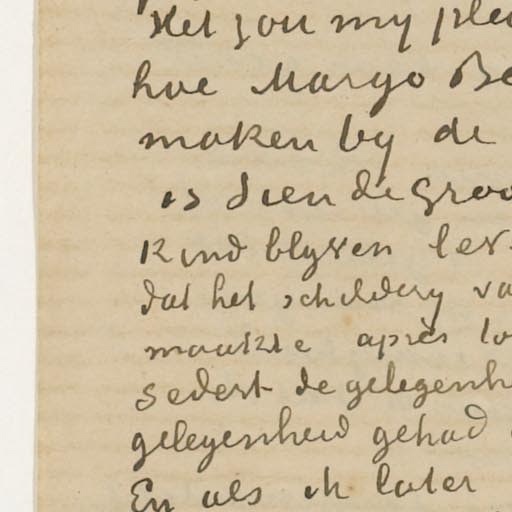 Het zou my ple
hoe Margo Be
maken by de
is Sien de Groo
Kind blyven lev
dat het schildery va
maakte après to
sedert de gelegenh
gelegenheid gehad
En als ik later